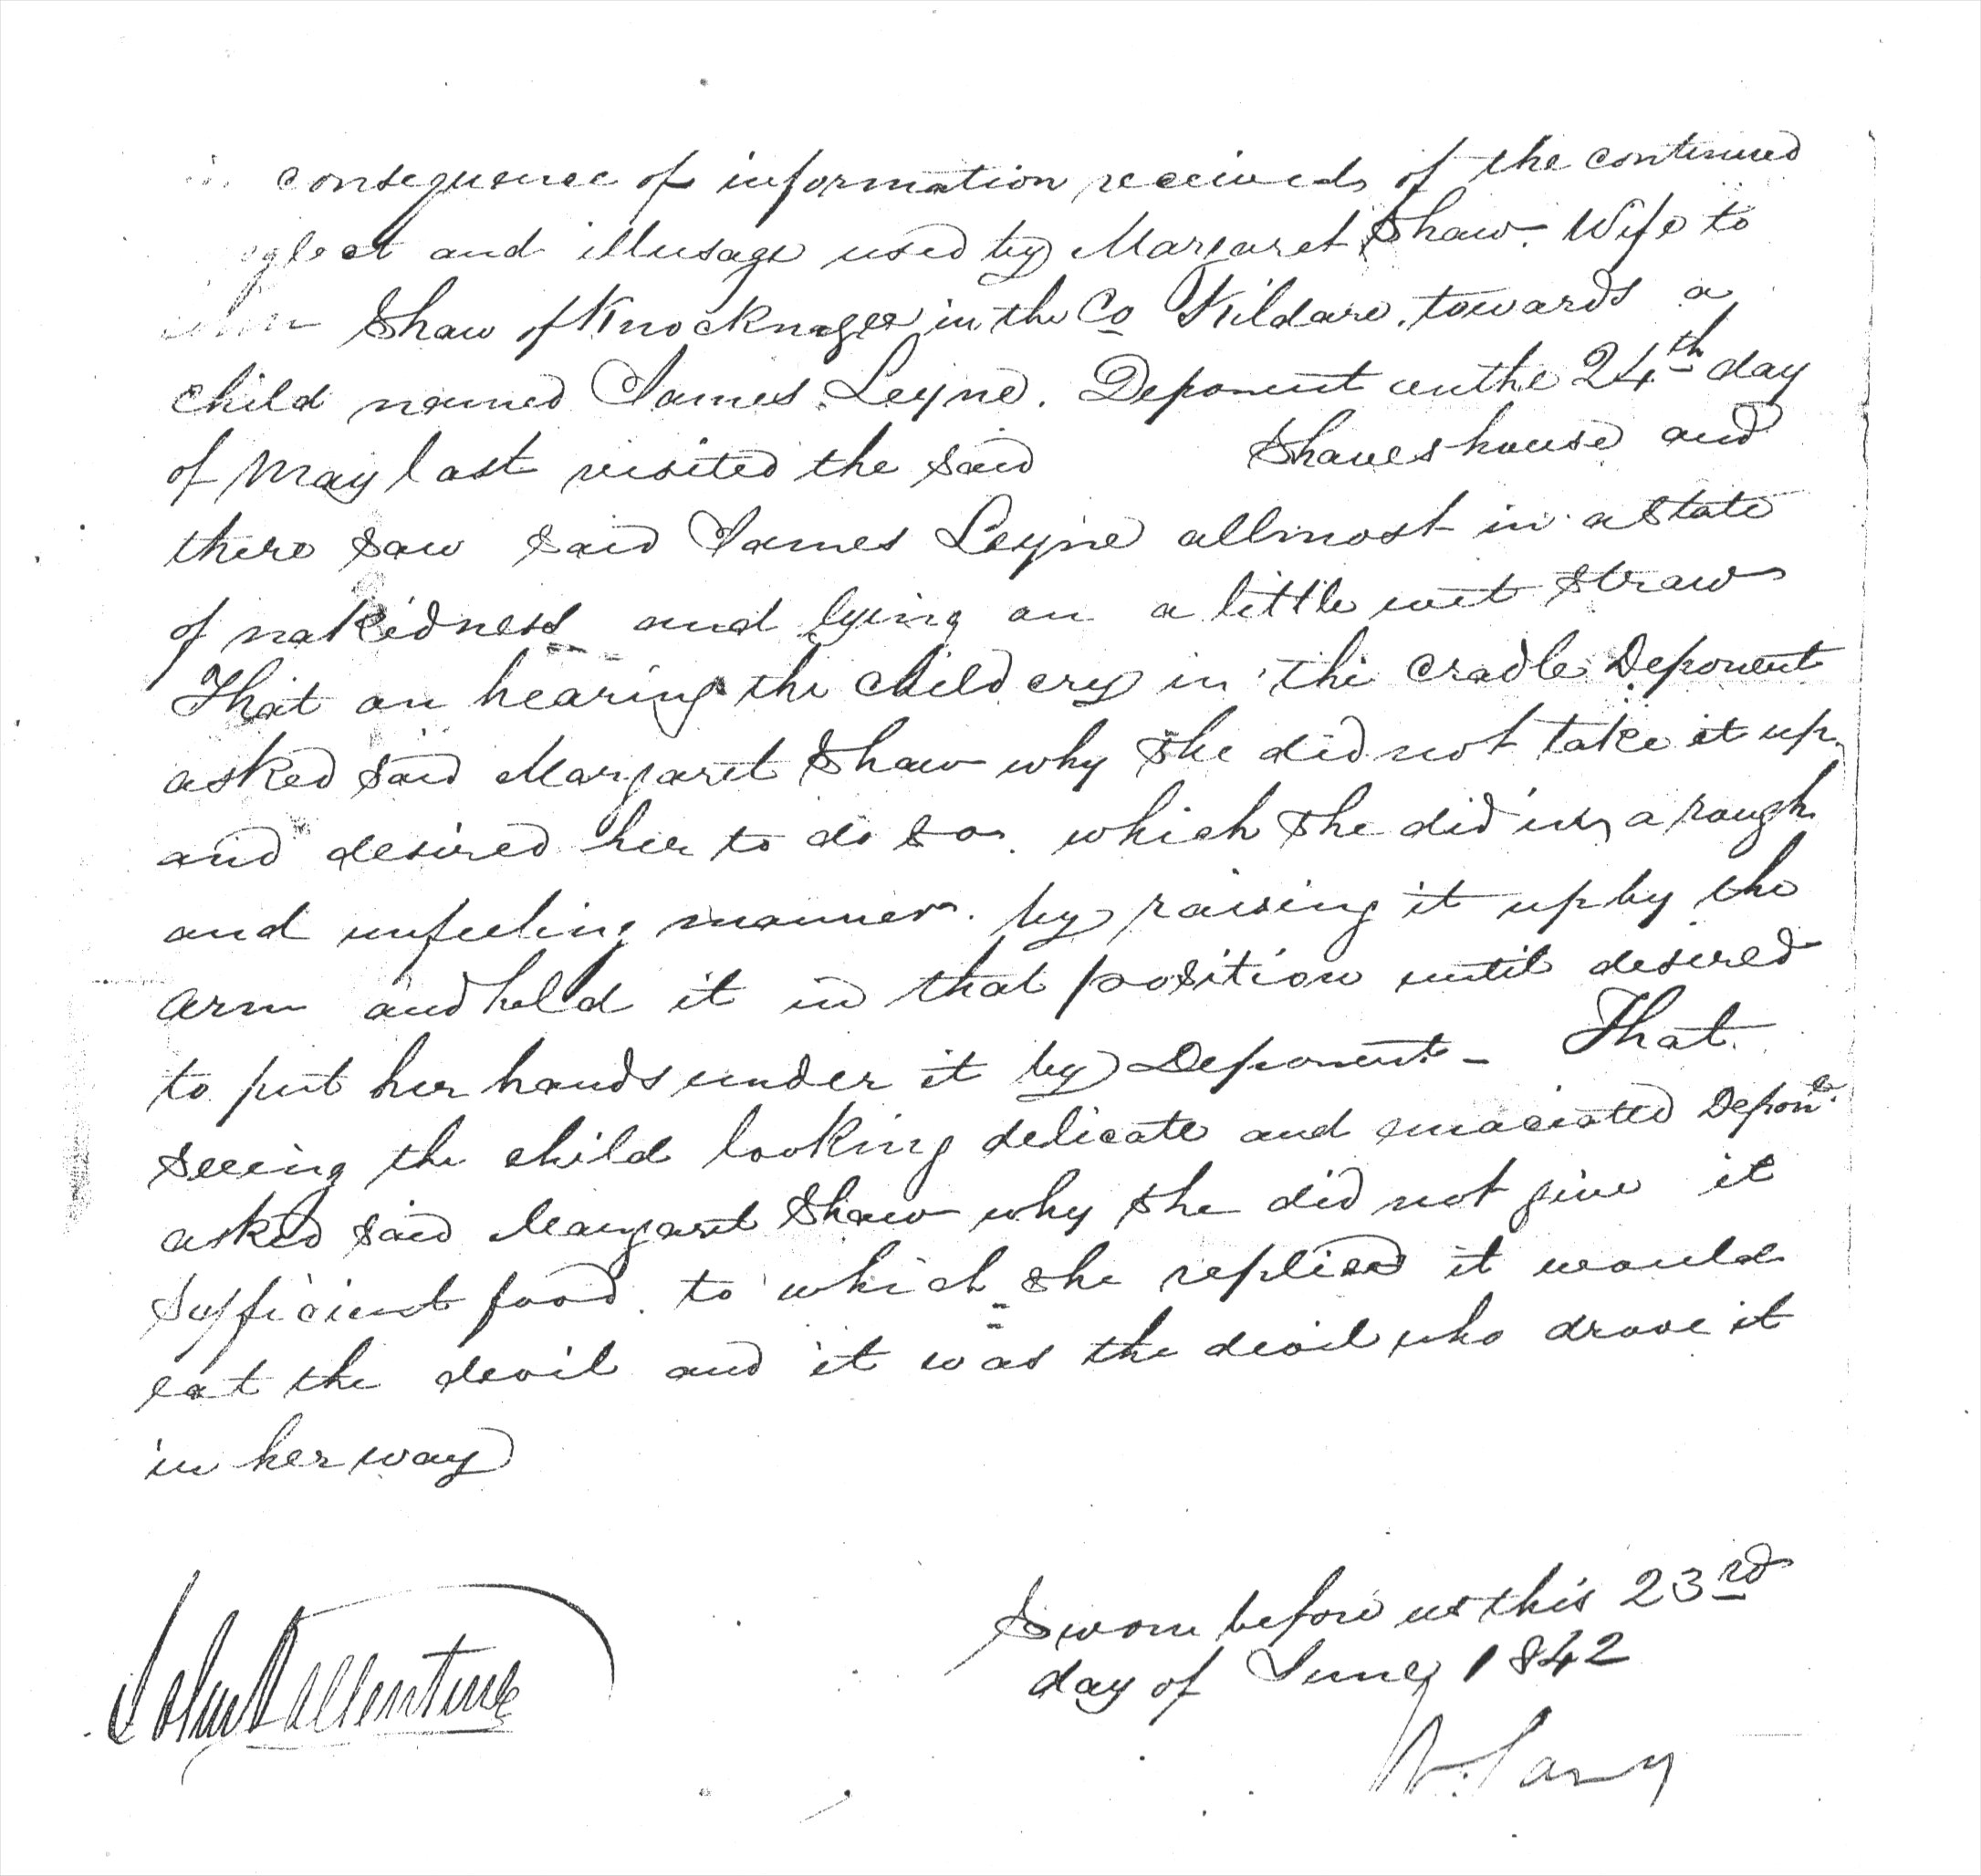 consequence of information received of the continued
glect and illusage used by Margaret Shaw. Wife to
Shaw of Knocknagee in the Co Kildare. towards a
child named James Leyne. Deponent on the 24th day
of May last visited the said Shaws house and
there saw said James Leyne allmost in a state
of nakedness and lying on a little wet straw
That on hearing the child cry in the cradle Deponent
asked said Margaret Shaw why she did not take it up
and desired her to do so. which she did in a rough
and unfeeling manner. by raising it up by the
arm and held it in that position until desired
to put her hands under it by Deponent - That
seeing the child looking delicate and emaciated Depont
asked said Margaret Shaw why she did not give it
sufficient food. to which she replied it would
eat the devil and it was the devil who drove it
in her way
Sworn before us this 23rd
day of June 1842
John Ballentine